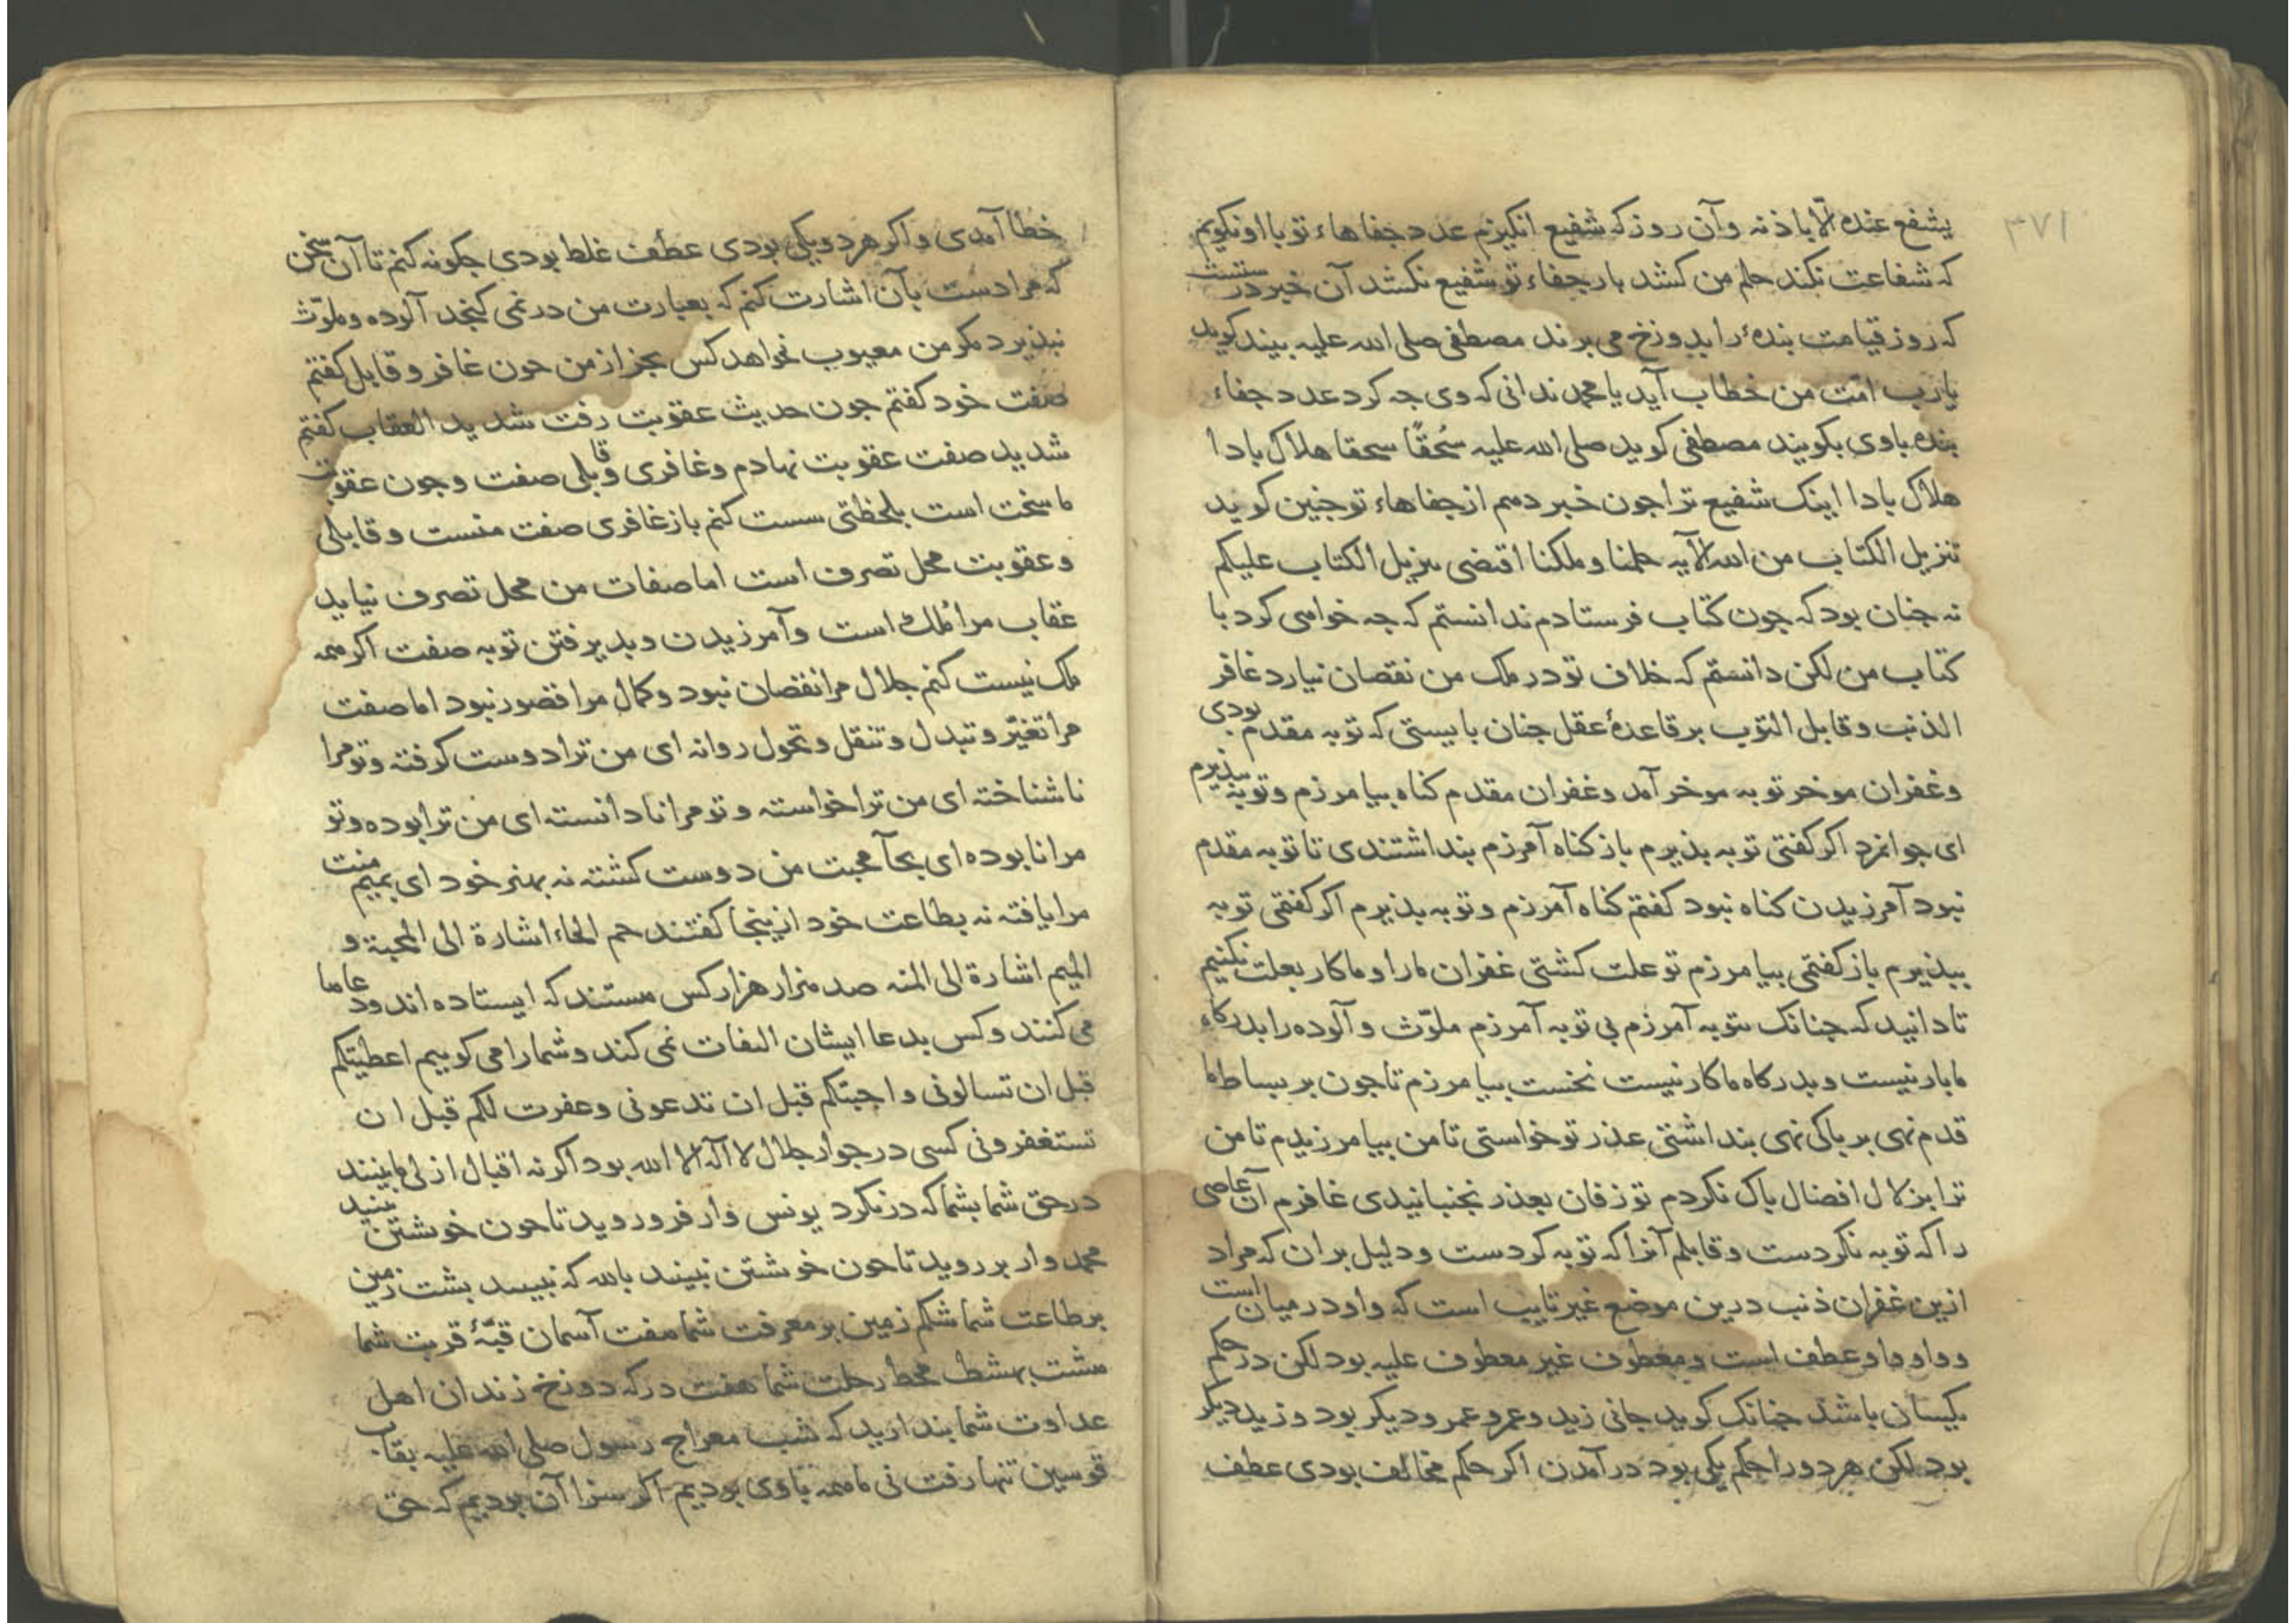 ۳۷۱
یشفع عنده الّا باذنه وآن روز که شفیع انکیزم عدد جفاهاء تو با او نکویم
که شفاعت نکند حلم من کشد بار جفاء تو شفیع نکشد آن خبر درستست
که روز قیامت بندهٔ را بدوزخ می برند مصطفی صلی الله علیه بیند کوید
یا رب امّت من خطاب آید یا محمد ندانی که وی جه کرد عدد جفاء
بنده باوی بکویند مصطفی کوید صلی الله علیه سُحقًا سحقا هلاک بادا
هلاک بادا اینک شفیع ترا جون خبر دهم از جفاهاء تو جنین کوید
تنزیل الکتاب من الله الآیه حلمنا وملکنا اقتضی تنزیل الکتاب علیکم
نه جنان بود که جون کتاب فرستادم ندانستم که جه خواهی کرد با
کتاب من لکن دانستم که خلاف تو در ملک من نقصان نیارد غافر
الذنب وقابل التوب بر قاعدهٔ عقل جنان بایستی که توبه مقدم بودی
وغفران موخر توبه موخر آمد وغفران مقدم کناه بیامرزم وتوبه بپذیرم
ای جوانمرد اکر کفتی توبه بذیرم باز کناه آمرزم بنداشتندی تا توبه مقدم
نبود آمرزیدن کناه نبود کفتم کناه آمرزم وتوبه بذیرم اکر کفتمی توبه
ببذیرم باز کفتمی بیامرزم تو علت کشتی غفران مارا وما کار بعلت نکنیم
تا دانید که جنانک بتوبه آمرزم بی توبه آمرزم ملوّث وآلوده را بدرکاه
ما بار نیست وبدرکاه ما کار نیست نخست بیامرزم تا جون بر بساط ما
قدم نهی بر باکی نهی بنداشتی عذر تو خواستی تا من بیامرزیدم تا من
ترا بزلال افضال باک نکردم تو زفان بعذر نجنبانیدی غافرم آن عاصی
را که توبه نکردست وقابلم آنرا که توبه کردست ودلیل بران که مراد
ازین غفران ذنب درین موضع غیر تایب است که واو در میان است
وواو واو عطف است ومعطوف غیر معطوف علیه بود لکن در حکم
یکسان باشد جنانک کوید جانی زید وعمرو عمرو دیکر بود وزید دیکر
بود لکن هر دو را حکم یکی بود در آمدن اکر حکم مخالف بودی عطف
خطا آمدی واکر هر دو یکی بودی عطف غلط بودی جکونه کنم تا آن سخن
که مرادست بآن اشارت کنم که بعبارت من در نمی کنجد آلوده وملوّث
نبذیرد مکر من معیوب نخواهد کس بجز از من جون غافر وقابل کفتم
صفت خود کفتم جون حدیث عقوبت رفت شدید العقاب کفتم
شدید صفت عقوبت نهادم وغافری وقابلی صفت وجون عقوبت
ما سخت است بلحظتی سست کنم باز غافری صفت منست وقابلی
وعقوبت محل تصرف است اما صفات من محل تصرف نیاید
عقاب مرا مُلک است وآمرزیدن وبدیرفتن توبه صفت اکر همه
ملک نیست کنم جلال مرا نقصان نبود وکمال مرا قصور نبود اما صفت
مرا تغیّر وتبدل وتنقل وتحول روا نه ای من ترا دوست کرفته وتو مرا
ناشناخته ای من ترا خواسته وتو مرا نادانسته ای من ترا بوده وتو
مرا نابوده ای بحآ محبت من دوست کشته نه بهنر خود ای بمیم منت
مرا یافته نه بطاعت خود ازینجا کفتند حم الحاء اشارة الی المحبة و
المیم اشارة الی المنه صد هزار هزار کس هستند که ایستاده اند ودعا ما
می کنند وکس بدعا ایشان التفات نمی کند وشما را می کوییم اعطیتکم
قبل ان تسالونی واجبتکم قبل ان تدعونی وغفرت لکم قبل ان
تستغفرونی کسی در جوار جلال لا اله الا الله بود اکر نه اقبال ازلی ما بینند
در حق شما بشما که درنکرد یونس وار فرو روید تا جون خویشتن بینید
محمد وار بر روید تا جون خوشتن نبینند بالله که بشت زمین
بر طاعت شما شکم زمین بر معرفت شما هفت آسمان قبّهٔ قربت شما
هشت بهشت محط رحلت شما هفت درکه دوزخ زندان اهل
عداوت شما بندارید که شب معراج رسول صلی الله علیه بقاب
قوسین تنها رفت نی ما همه باوی بودیم اکر سزا آن بودیم که حق